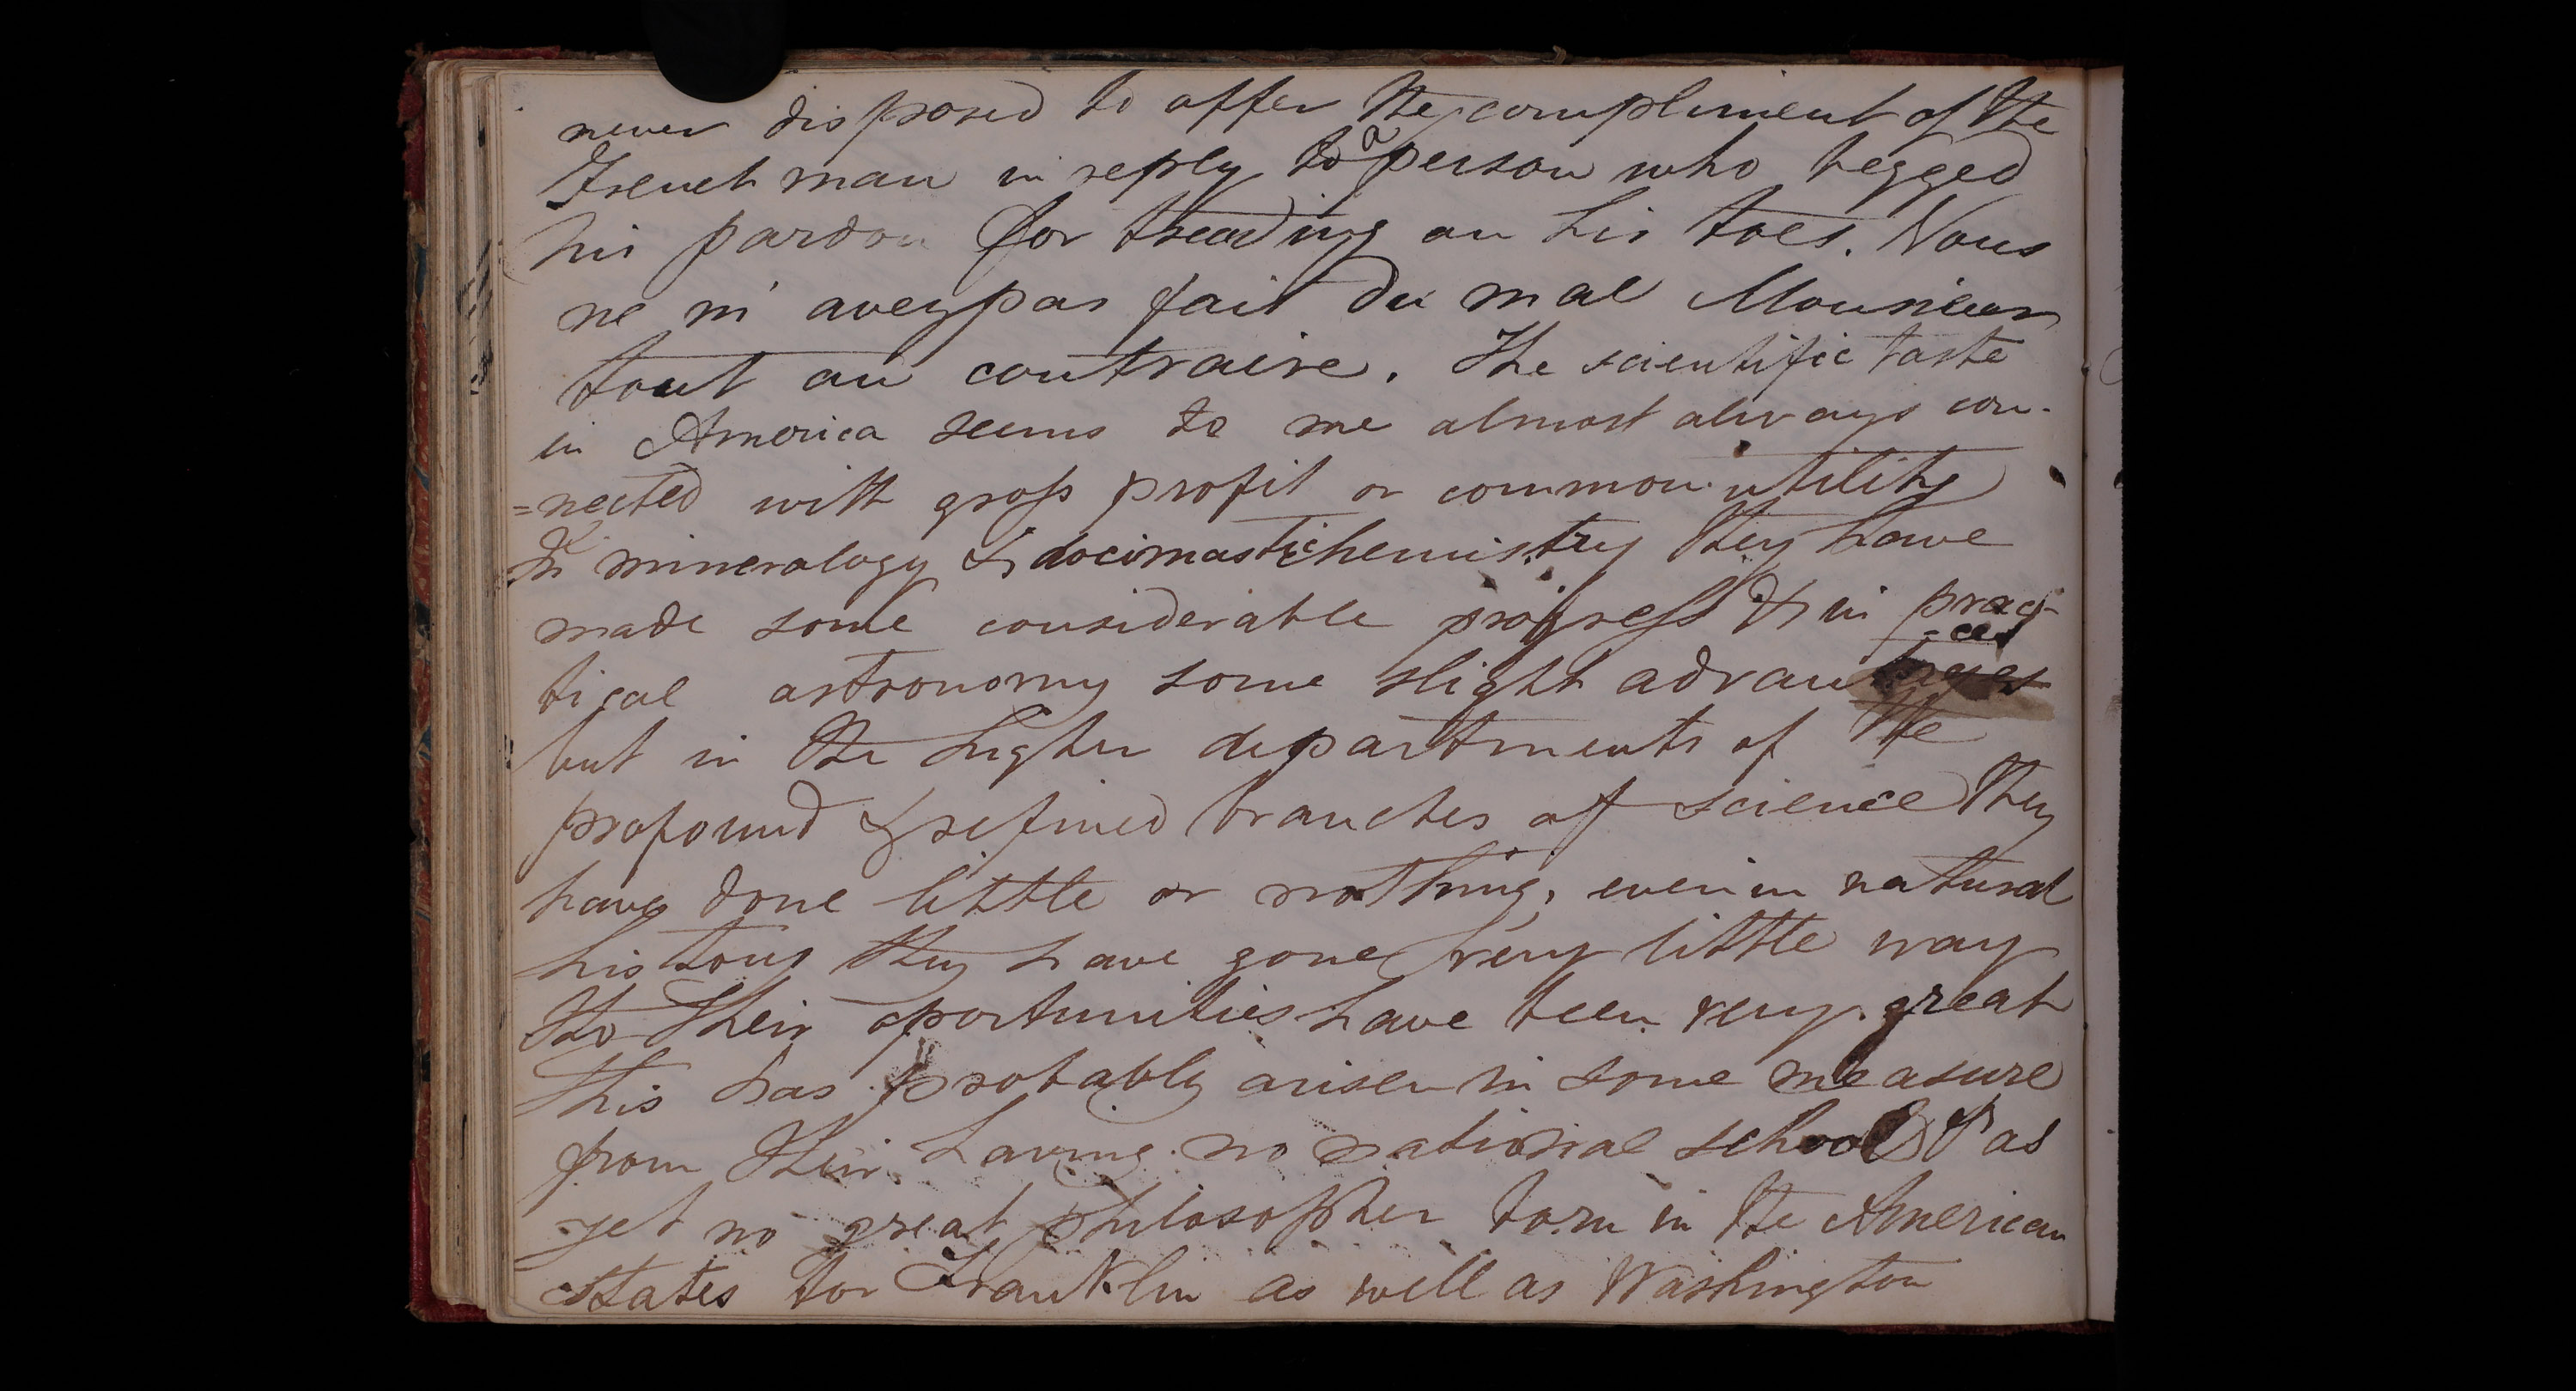 never disposed to offer the compliment of the
Frenchman in reply to a person who begged
his pardon for treading on his toes. Vous
ne m' avez pas fait du mal Monsieur
tout au contraire. The scientific taste
in America seems to me almost always con-
=nected with gross profit or common utility
In mineralogy & docimastic chemistry they have
made some considerable progress & in prac-
tical astronomy some slight advan =ces
but in the higher departments of the
profound & refined branches of science they
have done little or nothing, even in natural
history they have gone very little way
tho their oportunities have been very great
this has probably arisen in some measure
from their having no national school & as
yet no great philosopher born in the American
states for Franklin as well as Washington